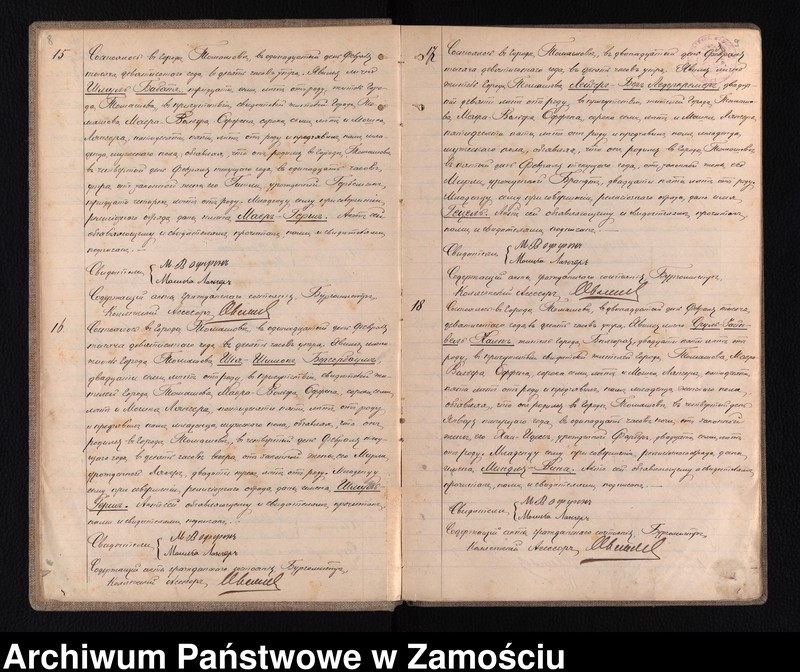 15
Состоялось въ городѣ Томашовѣ, въ одинадцатый день Февраля
тысяча девятисотаго года, въ десять часовъ утра. Явился лично
Шмуль тридцати семи лѣтъ отъ роду, житель Горо-
да Томашова, въ присутствіи свидѣтелей жителей Города То-
машова Маера-Вольфа Оффена, сорока семи лѣтъ и Мошка
Лангера, пятидесяти пяти лѣтъ отъ роду и предъявилъ намъ мла-
денца мужескаго пола, объявляя, что онъ родился въ Городѣ Томашовѣ
въ четвертый день Февраля текущаго года, въ одинадцать часовъ
утра отъ законной жены его урожденной
тридцати четырехъ лѣтъ отъ роду. Младенцу сему при совершеніи
религіознаго обряда дано имена Маеръ-Гершъ. Актъ сей
объявляющему и свидѣтелямъ прочитанъ, нами и свидѣтелями
подписанъ.
Свидѣтели { М В Оффенъ
Мошко Лангеръ
Содержащій акты гражданскаго состоянія Бургомистръ,
Коллежскій Ассесоръ,
16
Состоялось въ Городѣ Томашовѣ, въ одинадцатый день Февраля
тысяча девятисотаго года, въ десять часовъ утра. Явился лично
житель Города Томашова
двадцати семи лѣтъ отъ роду, въ присутствіи свидѣтелей жи-
телей Города Томашова, Маера-Вольфа Оффена, сорока семи
лѣтъ и Мошка Лангера, пятидесяти пяти лѣтъ отъ роду
и предъявилъ намъ младенца мужескаго пола, объявляя, что онъ
родился въ Городѣ Томашовѣ, въ четвертый день Февраля теку-
щаго года, въ десять часовъ вечера отъ законной жены его
урожденной Лихтеръ, двадцати лѣтъ отъ роду. Младенцу
сему при совершеніи религіознаго обряда дано имена
Гершъ. Актъ сей объявляющему и свидѣтелямъ прочитанъ,
нами и свидѣтелями подписанъ.
Свидѣтели { М В Оффенъ
Мошко Лангеръ
Содержащій акты гражданскаго состоянія Бургомистръ,
Коллежскій Ассесоръ,
17
Состоялось въ Городѣ Томашовѣ, въ двенадцатый день Февраля
тысяча девятисотаго года, въ десять часовъ утра. Явился лично
житель Города Томашова двадца-
ти девяти лѣтъ отъ роду, въ присутствіи жителей Города Томашо-
ва Маера-Вольфа Оффена, сорока семи лѣтъ и Мошка Лангера,
пятидесяти пяти лѣтъ отъ роду и предъявилъ намъ младенца
мужескаго пола, объявляя, что онъ родился въ Городѣ Томашовѣ
въ пятый день Февраля текущаго года, отъ законной жены его
урожденной двадцати пяти лѣтъ отъ роду.
Младенцу сему при совершеніи религіознаго обряда дано имя
Актъ сей объявляющему и свидѣтелямъ прочитанъ,
нами и свидѣтелями подписанъ.
Свидѣтели { М В Оффенъ
Мошко Лангеръ
Содержащій акты гражданскаго состоянія Бургомистръ,
Коллежскій Ассесоръ,
18
Состоялось въ Городѣ Томашовѣ, въ двенадцатый день Февраля тысяча
девятисотаго года въ десять часовъ утра. Явился лично
житель Города двадцати пяти лѣтъ отъ
роду, въ присутствіи свидѣтелей жителей Города Томашова, Маера-
Вольфа Оффена, сорока семи лѣтъ и Мошка Лангера, пятидесяти
пяти лѣтъ отъ роду и предъявилъ намъ младенца женскаго пола,
объявляя, что онъ родился въ Городѣ Томашовѣ, въ день
Января текущаго года, въ одинадцать часовъ ночи, отъ законной
жены его урожденной двадцати семи лѣтъ
отъ роду. Младенцу сему при совершеніи религіознаго обряда дано
имена Актъ сей объявляющему и свидѣтелямъ
прочитанъ, нами и свидѣтелями подписанъ.
Свидѣтели { М В Оффенъ
Мошко Лангеръ
Содержащій акты гражданскаго состоянія Бургомистръ,
Коллежскій Ассесоръ,
Archiwum Państwowe w Zamościu